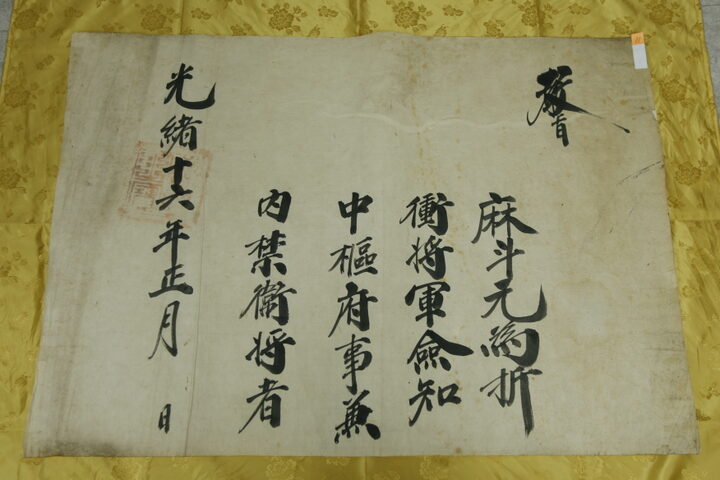 敎旨
麻斗元爲折
衝將軍僉知
中樞府事兼
內禁衛將者
光緖十六年正月 日